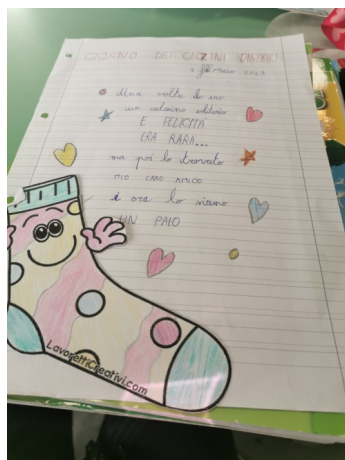 GIORNO DEI CALZINI DISPARI
3 febbraio 2023
Una volta ero
un calzino solitario
E FELICITÀ
ERA RARA...
ma poi ho trovato
MIO CARO AMICO
e ora lo siamo
UN PAIO
LavorettiCreativi.com